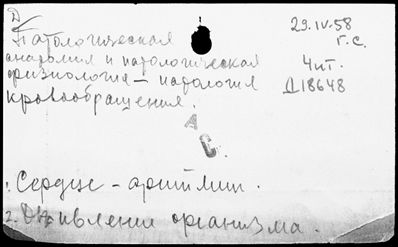 Д
Патологическая
анатомия и патологическая
физиология — патология
кровообращения.
29.IV.58
Г.С.
Чит.
Д18648
АС.
1. Сердце - аритмии.
2. Оживление организма.